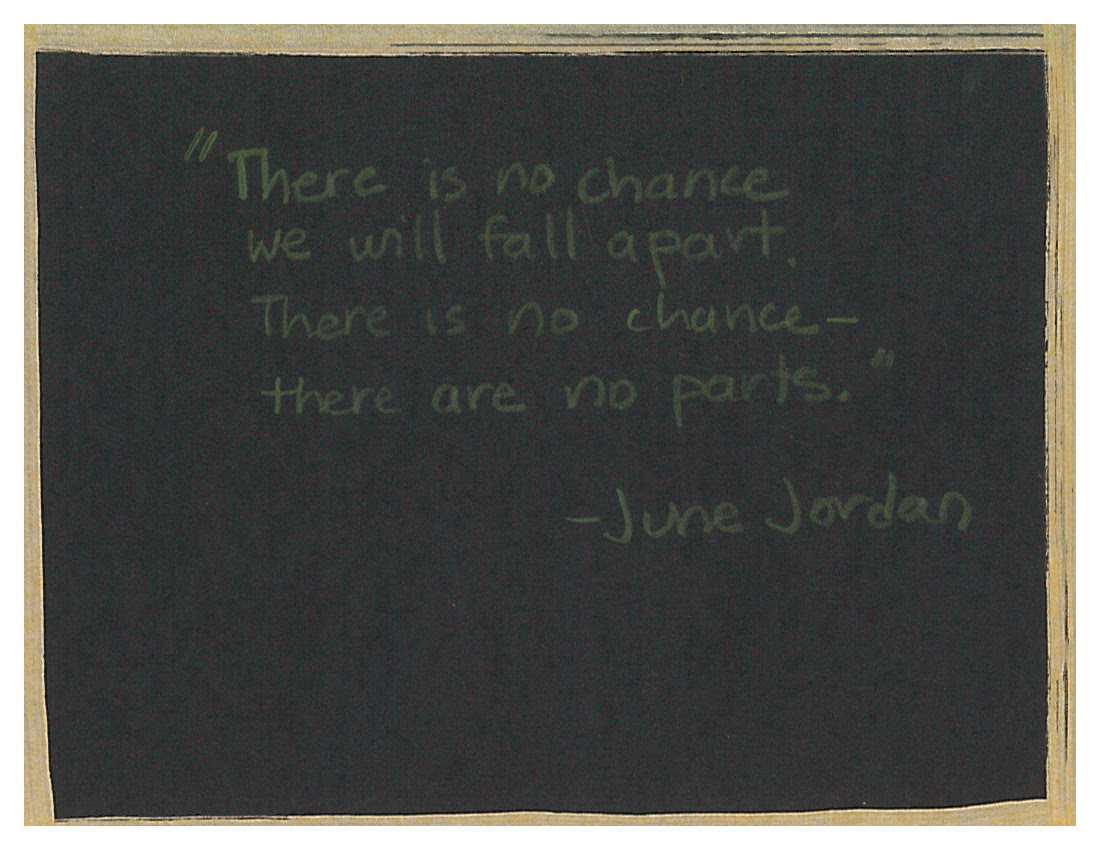 "There is no chance
we will fall apart.
There is no chance—
there are no parts."
-June Jordan